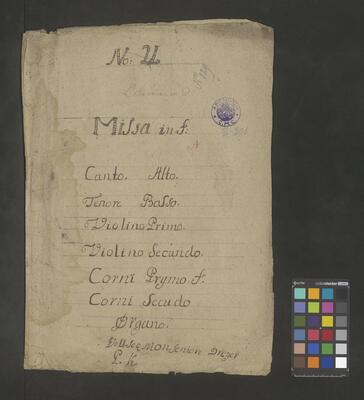 No: 21
Missa in f:
Canto. Alto.
Tenore Basso.
Violino Primo.
Violino Secundo.
Corni Prymo. f.
Corni Secudo
Organo.
P. k